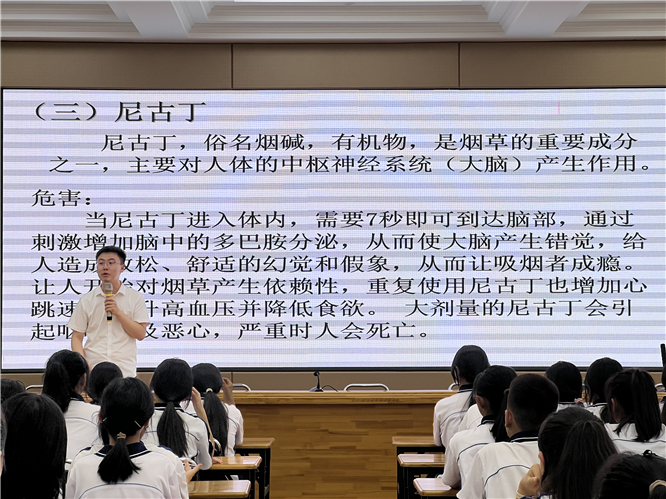 （三）尼古丁
尼古丁，俗名烟碱，有机物，是烟草的重要成分
之一，主要对人体的中枢神经系统（大脑）产生作用。
危害：
当尼古丁进入体内，需要7秒即可到达脑部，通过
刺激增加脑中的多巴胺分泌，从而使大脑产生错觉，给
人造成放松、舒适的幻觉和假象，从而让吸烟者成瘾。
让人开始对烟草产生依赖性，重复使用尼古丁也增加心
跳速 升高血压并降低食欲。 大剂量的尼古丁会引
起 及恶心，严重时人会死亡。